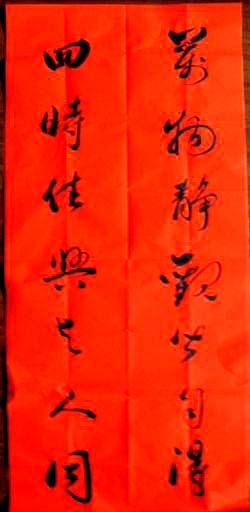 萬物静觀皆自得
四時佳興与人同